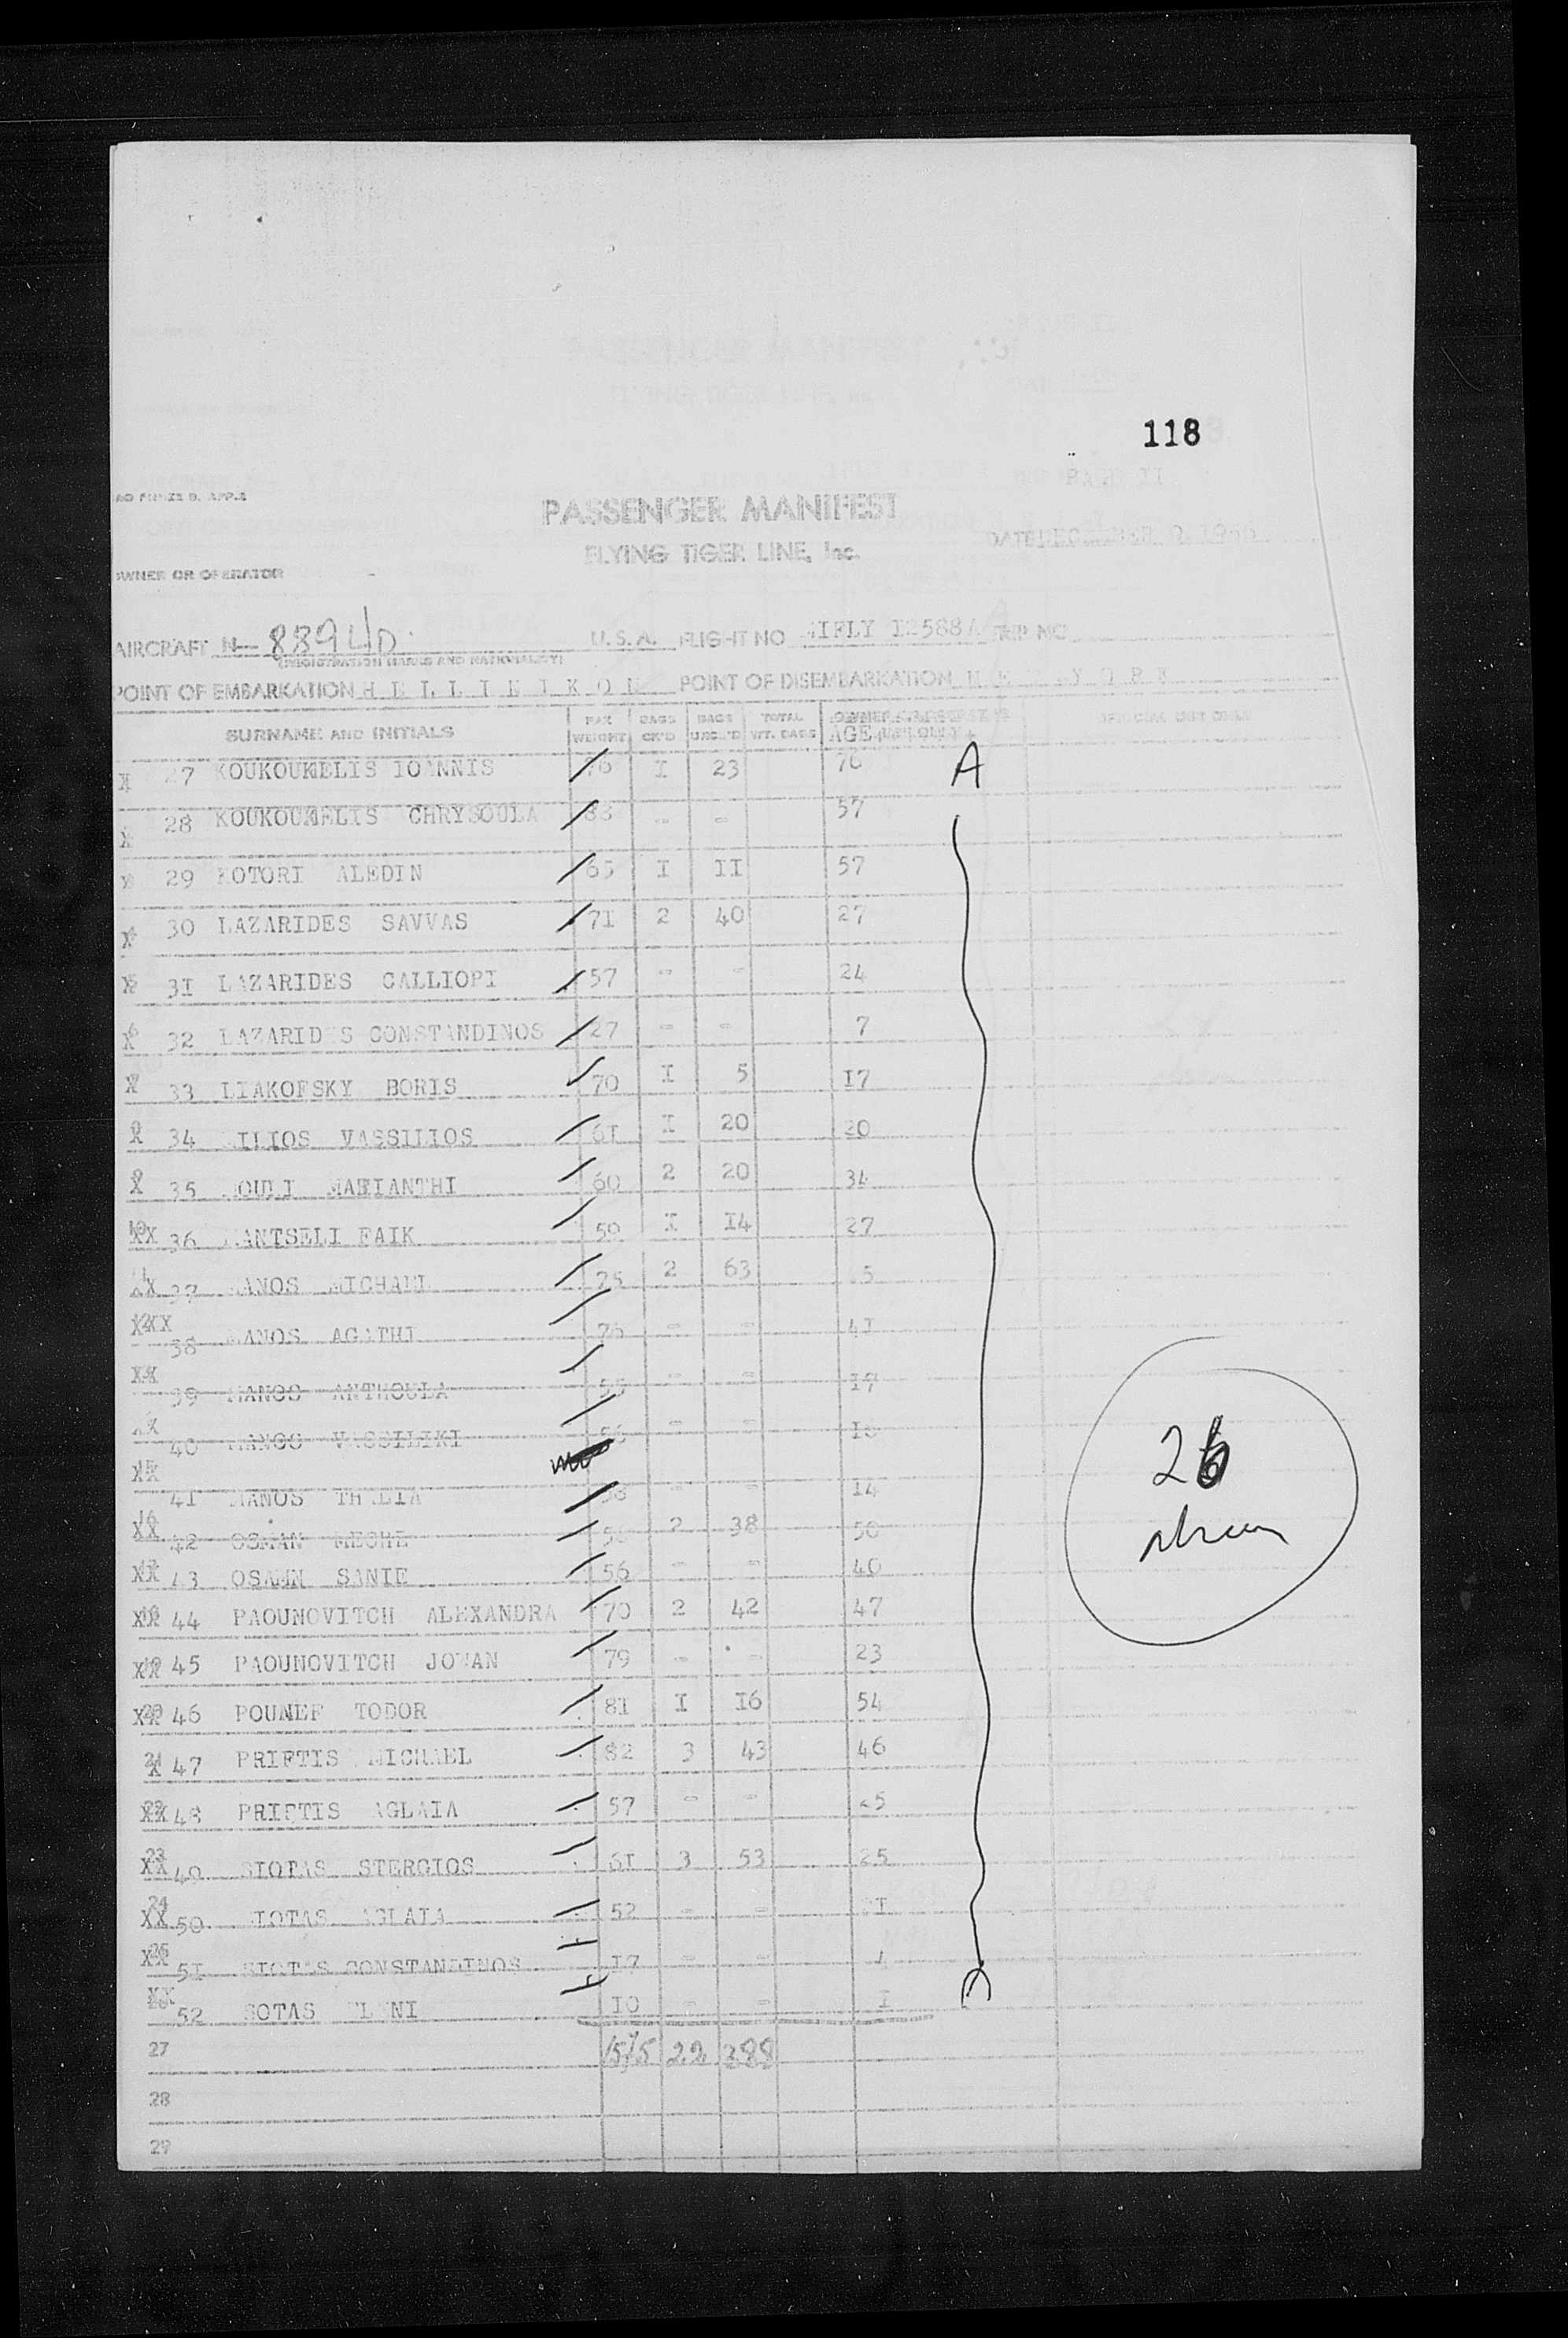 118
PAGE II
PASSENGER MANIFEST
FLYING TIGER LINE, Inc.
DATE DECEMBER
OWNER OR OPERATOR
AIRCRAFT N— 88940 U.S.A. FLIGHT NO MIFLY I2588A TRIP NO
(REGISTRATION MARKS AND NATIONALITY)
POINT OF EMBARKATION H E L L I N I K O N POINT OF DISEMBARKATION N E W Y O R K
SURNAME AND INITIALS PAX WEIGHT BAGS CK'D BAGS UNCK'D TOTAL WT. BAGS AGE OFFICIAL USE ONLY
27 KOUKOUMELIS IOANNIS 76 I 23 76 A
28 KOUKOUMELIS CHRYSOULA - - 57
29 KOTORI ALEDIN 65 I II 57
30 LAZARIDES SAVVAS 71 2 40 27
3I LAZARIDES CALLIOPI 57 - - 24
32 LAZARIDES CONSTANDINOS 27 - - 7
33 LIAKOFSKY BORIS 70 I 5 I7
34 MILIOS VASSILIOS 6I I 20 20
35 MARIANTHI 60 2 20 34
36 FAIK 59 I I4 27
37 MANOS MICHAEL 75 2 63
38 MANOS AGATHI 76 - - 4I
39 MANOS ANTHOULA 55 - - I7
40 MANOS VASSILIKI - -
4I MANOS THALIA 58 - - I4
42 OSMAN MECHE 2 38 50
43 OSAMN SANIE 56 - - 40
44 PAOUNOVITCH ALEXANDRA 70 2 42 47
45 PAOUNOVITCH JOVAN 79 - - 23
46 POUNEF TODOR 81 I I6 54
47 PRIFTIS MICHAEL 82 3 43 46
48 PRIFTIS AGLAIA 57 - - 25
49 SIOTAS STERGIOS 6I 3 53 25
50 SIOTAS AGLAIA 52 - -
5I SIOTAS CONSTANDINOS I7 - - 4
52 SOTAS ELENI I0 - - I
27 1575 22 388
28
29
26